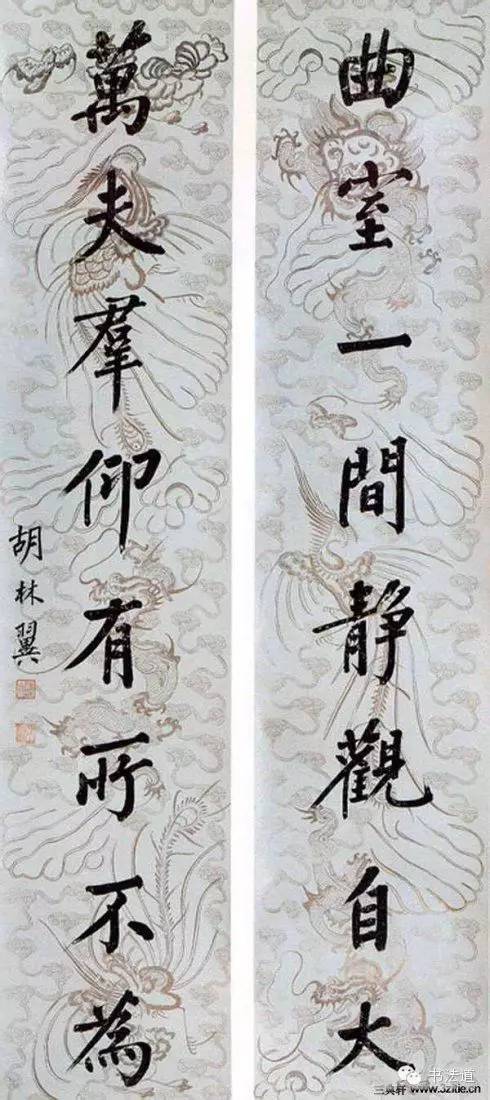 曲室一間靜觀自大
萬夫羣仰有所不為
胡林翼
书法道
三典轩 www.3zitie.cn